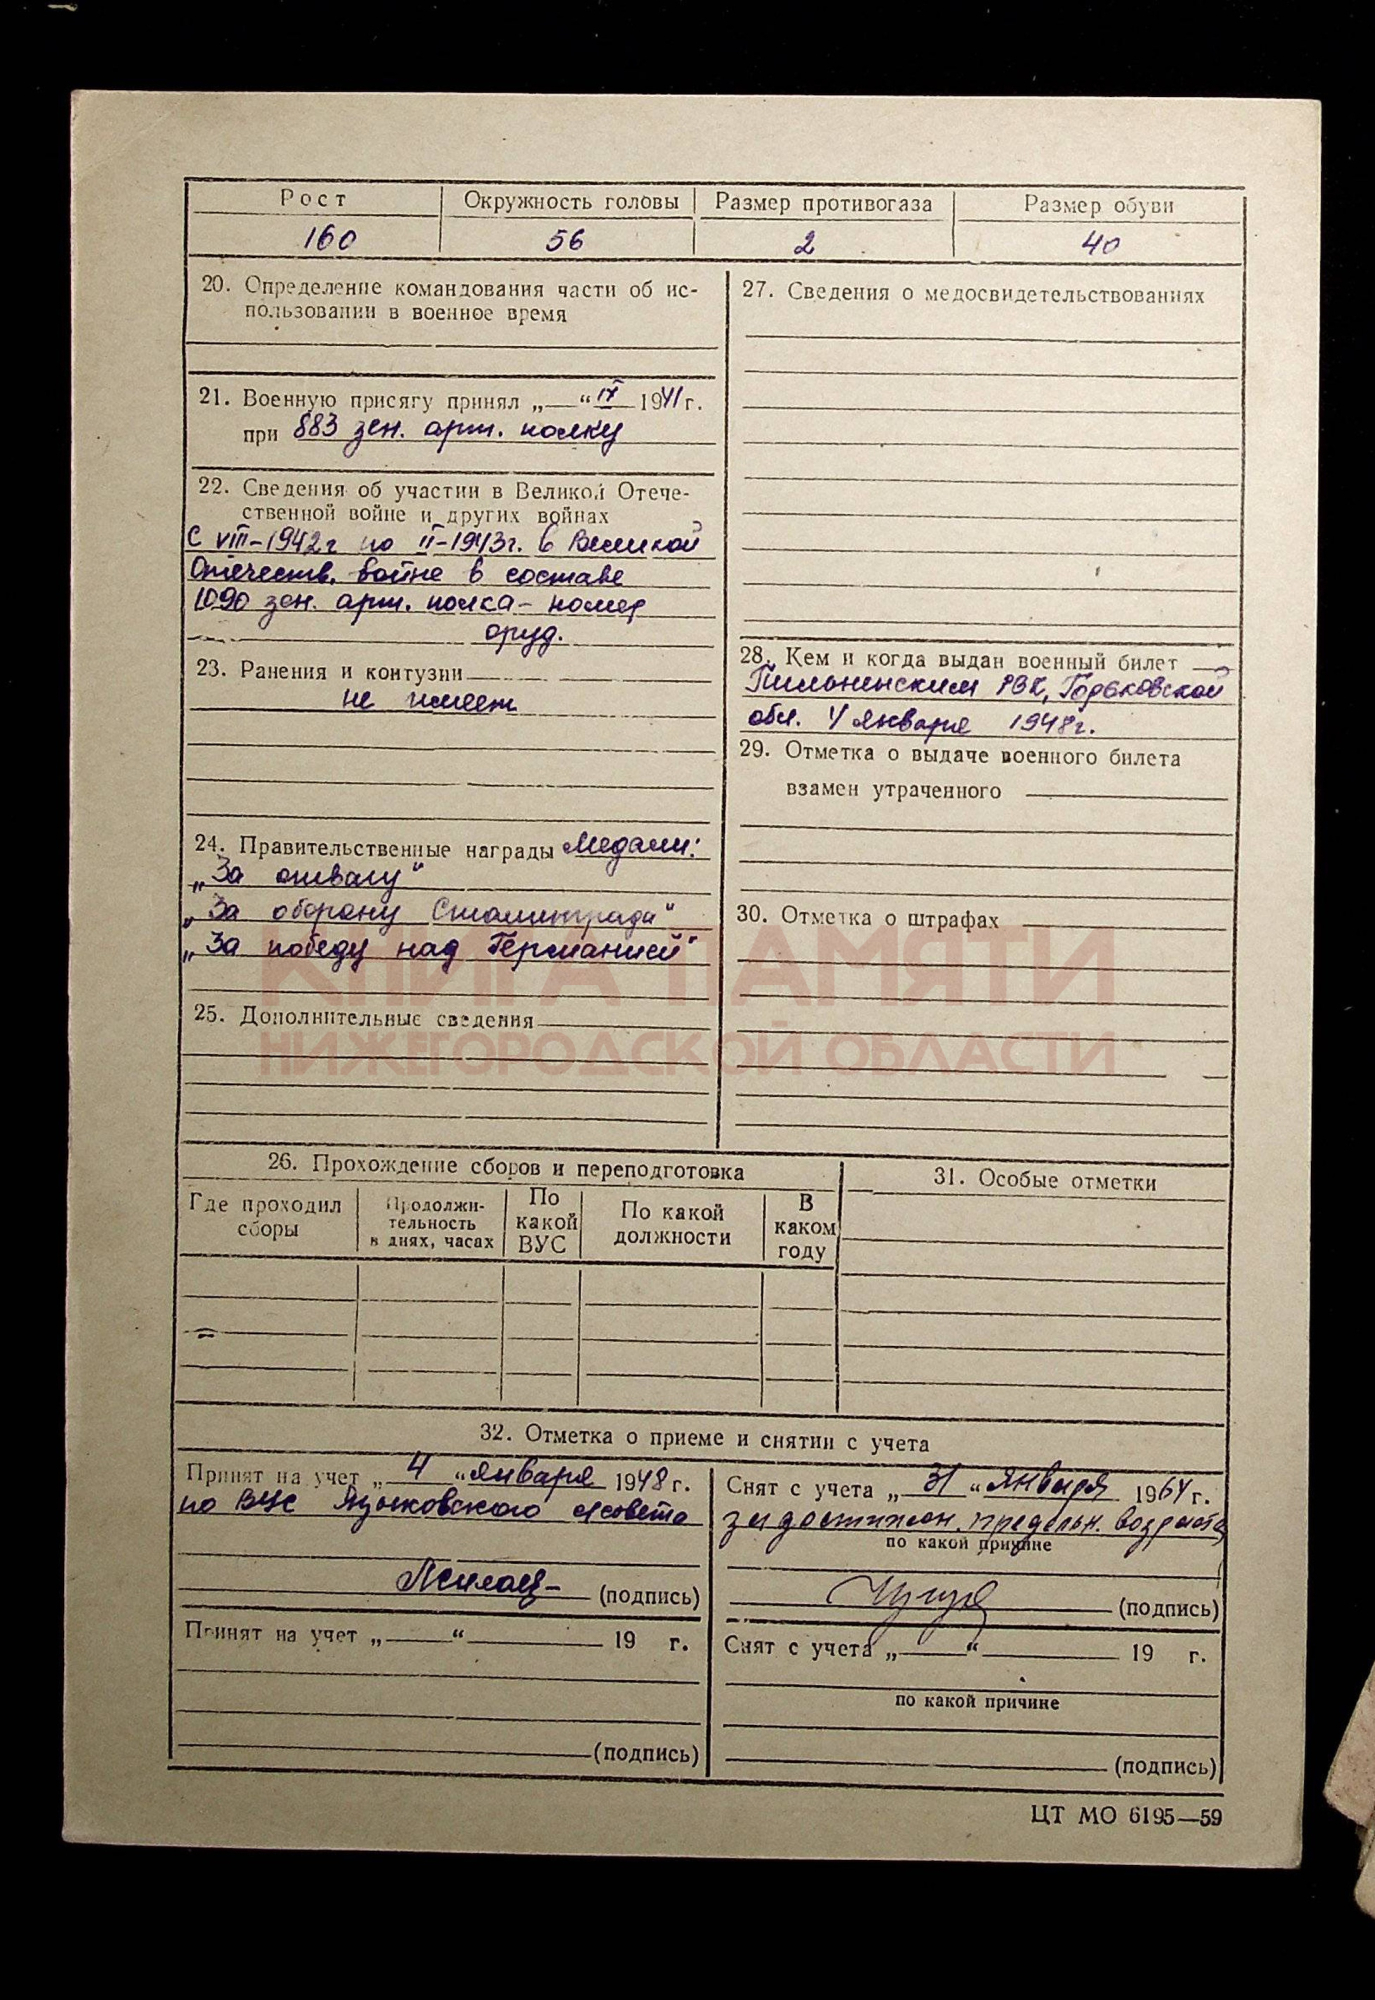 Рост Окружность головы Размер противогаза Размер обуви
160 56 2 40
20. Определение командования части об ис-
пользовании в военное время
21. Военную присягу принял „—“ IX 1941 г.
при 883 зен. арт. полку
22. Сведения об участии в Великой Отече-
ственной войне и других войнах
С VIII-1942г по II-1943г. в Великой
Отечеств. войне в составе
1090 зен. арт. полка - номер
оруд.
23. Ранения и контузии
не имеет
24. Правительственные награды Медали:
„За отвагу“
„За оборону Сталинграда“
„За победу над Германией“
25. Дополнительные сведения
27. Сведения о медосвидетельствованиях
28. Кем и когда выдан военный билет
Пильнинским РВК, Горьковской
обл. 4 января 1948г.
29. Отметка о выдаче военного билета
взамен утраченного
30. Отметка о штрафах
КНИГА ПАМЯТИ
НИЖЕГОРОДСКОЙ ОБЛАСТИ
26. Прохождение сборов и переподготовка
Где проходил сборы
Продолжи-
тельность
в днях, часах
По
какой
ВУС
По какой
должности
В
каком
году
31. Особые отметки
32. Отметка о приеме и снятии с учета
Принят на учет „4“ января 1948 г.
по ВУС Языковского с/совета
(подпись)
Снят с учета „31“ января 1964 г.
за достижен. предельн. возраста
по какой причине
(подпись)
Принят на учет „—“ 19 г.
(подпись)
Снят с учета „—“ 19 г.
по какой причине
(подпись)
ЦТ МО 6195—59